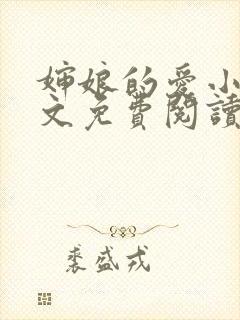 婶娘的爱小
文免费阅读
裘盛戎